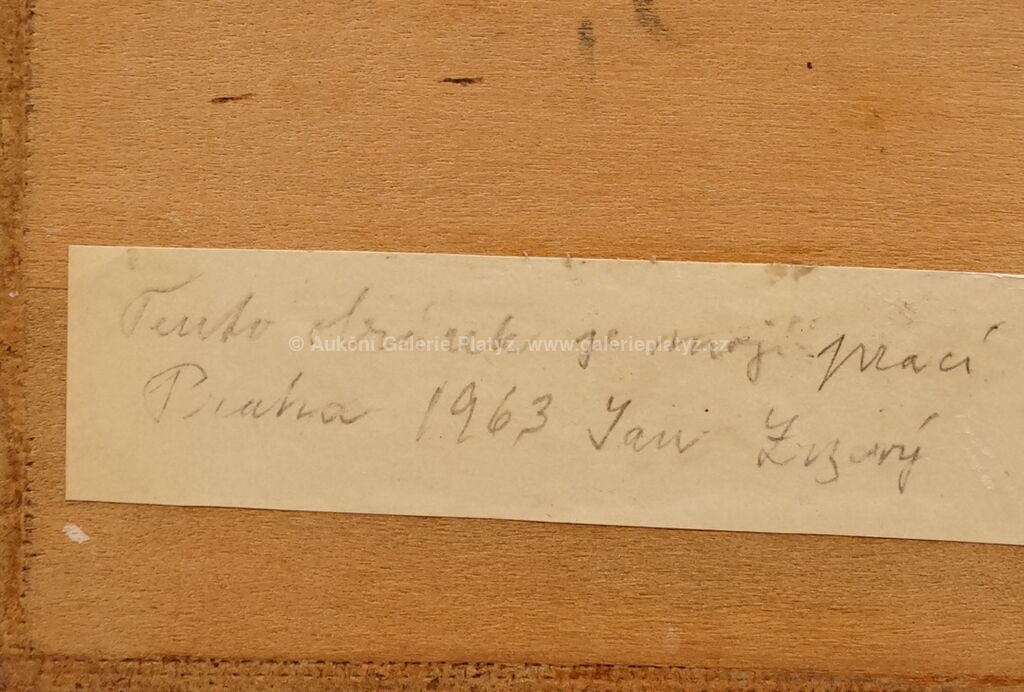 Tento obrázek je mojí prací
© Aukční Galerie Platýz, www.galerieplatyz.cz
Praha 1963 Jan Zrzavý